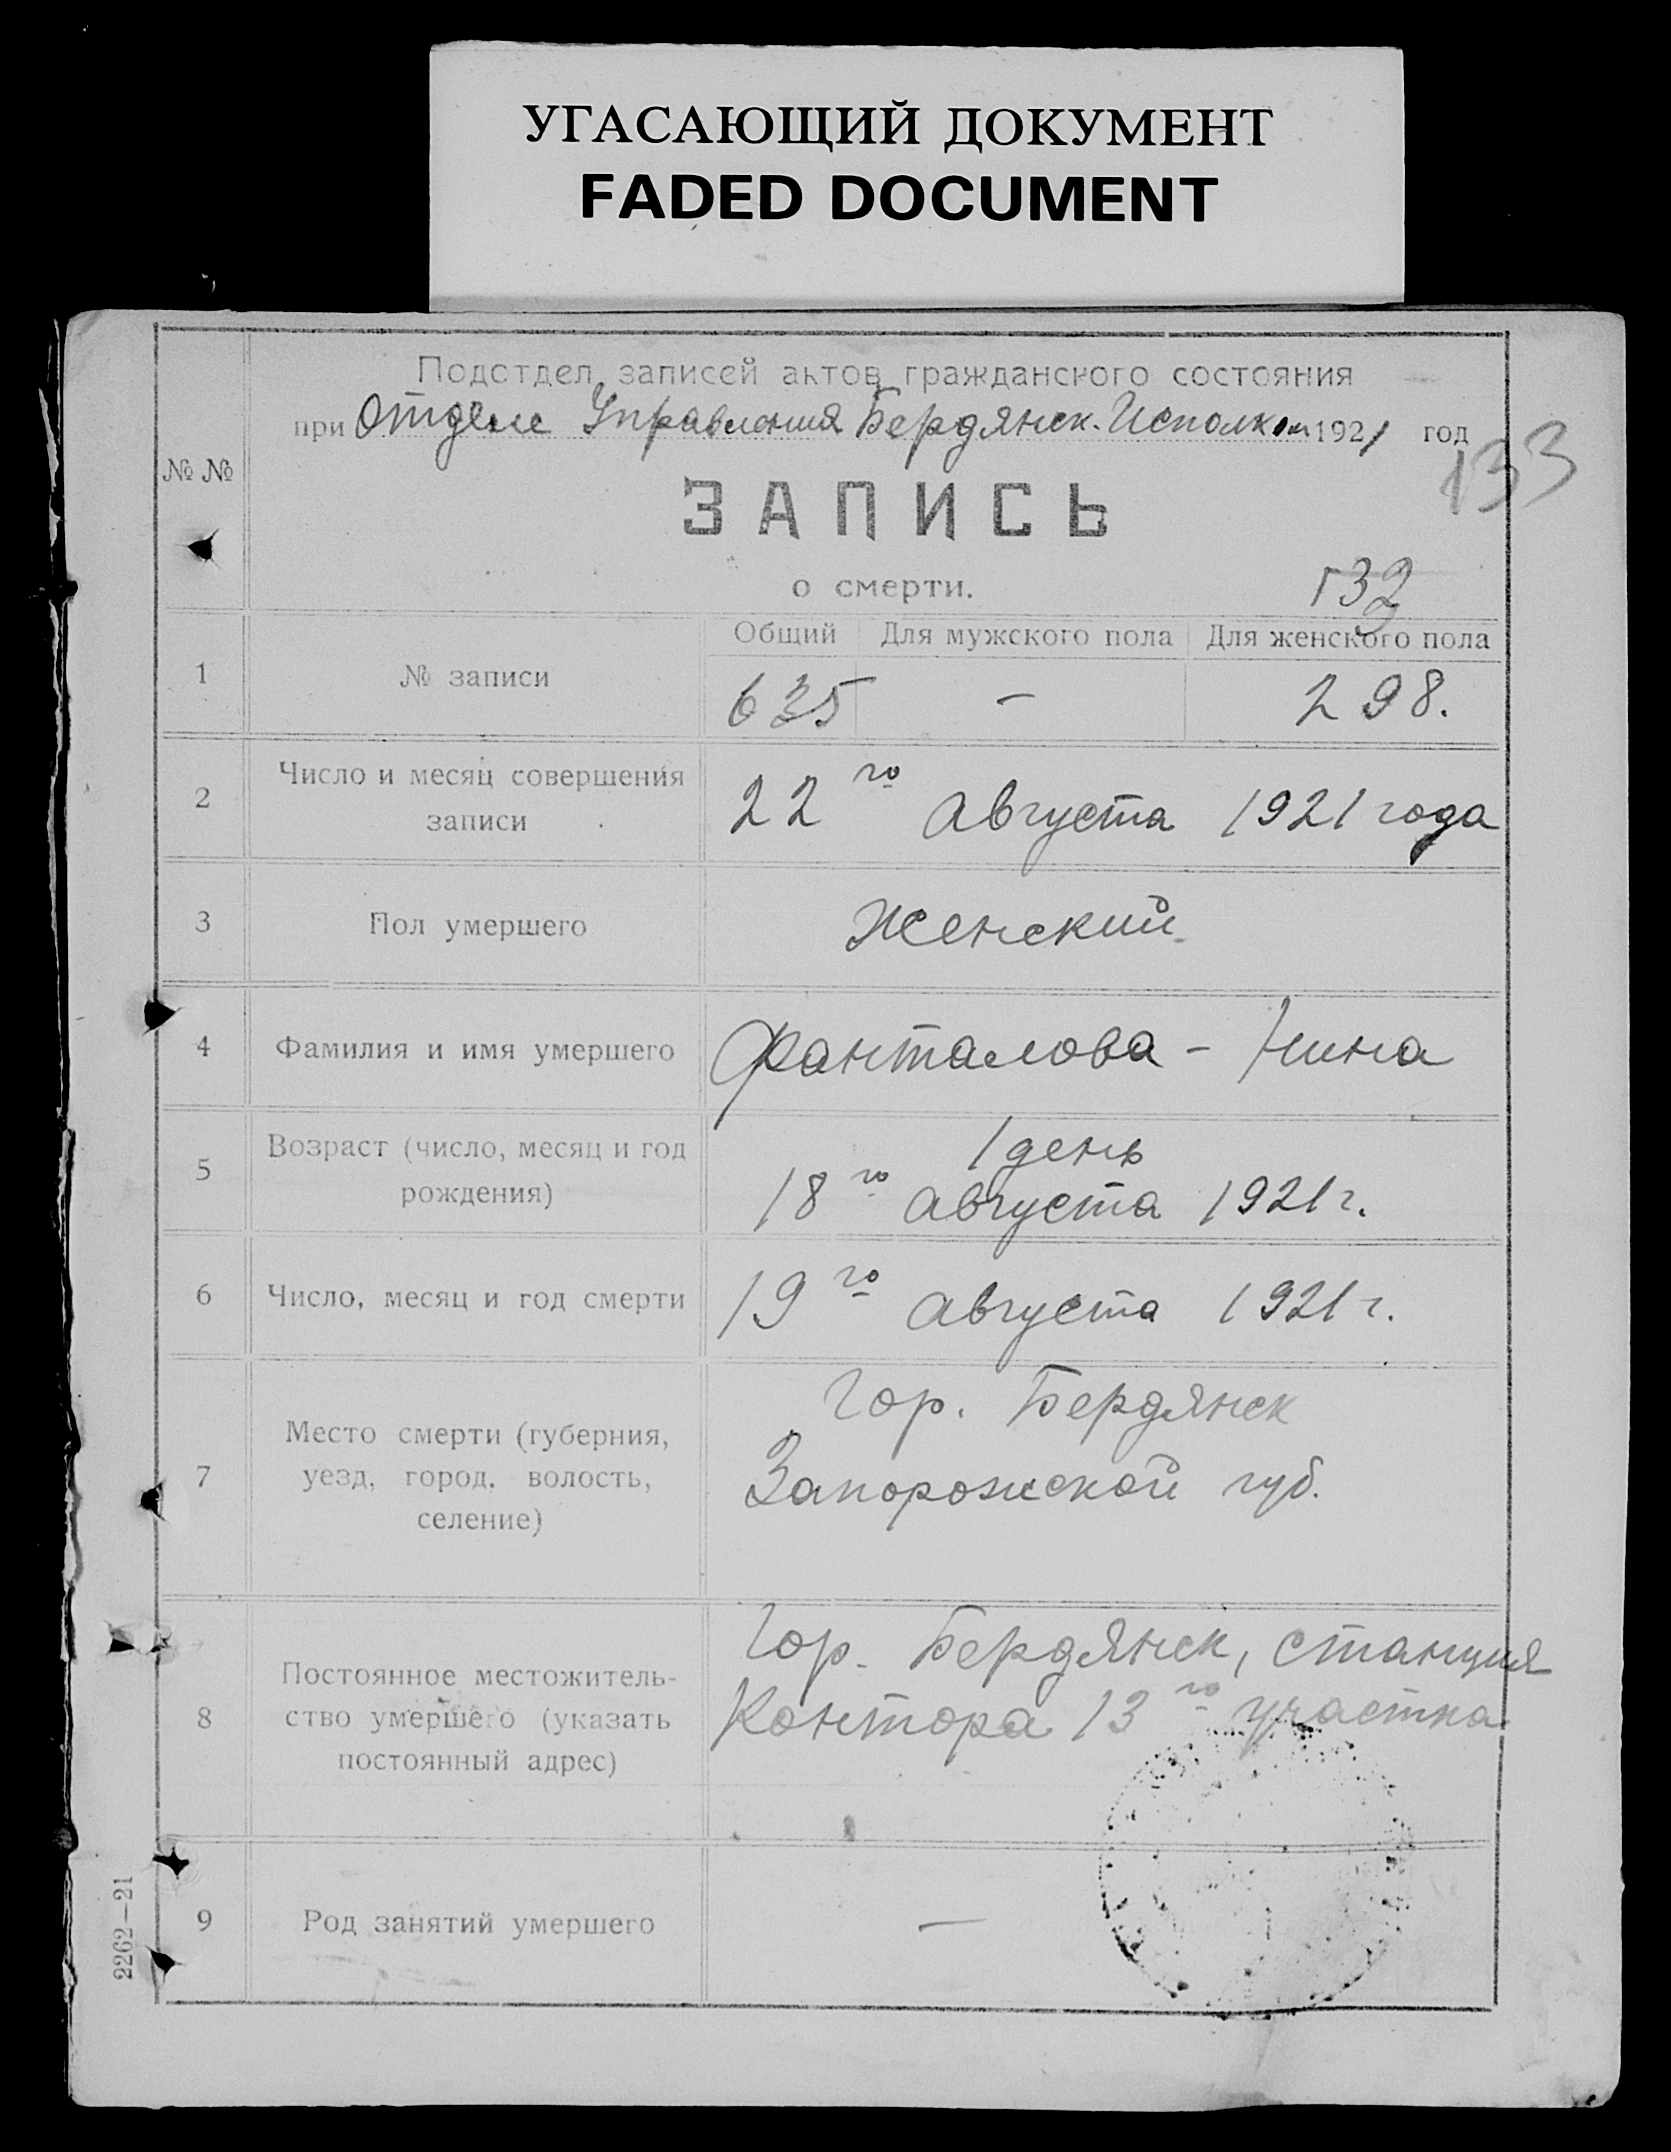 УГАСАЮЩИЙ ДОКУМЕНТ
FADED DOCUMENT
Подотдел записей актов гражданского состояния
при Отделе Управления Бердянск. Исполком 1921 год
133
№ №
ЗАПИСЬ
о смерти.
132
Общий Для мужского пола Для женского пола
1 № записи 635 – 298.
2 Число и месяц совершения
записи
22го Августа 1921 года
3 Пол умершего Женский
4 Фамилия и имя умершего Фанталова – Нина
5 Возраст (число, месяц и год
рождения)
1 день
18го Августа 1921 г.
6 Число, месяц и год смерти 19го Августа 1921 г.
7 Место смерти (губерния,
уезд, город, волость,
селение)
Гор. Бердянск
Запорожской губ.
8 Постоянное местожитель-
ство умершего (указать
постоянный адрес)
Гор. Бердянск, станция
Контора 13го участка
9 Род занятий умершего —
2262—21